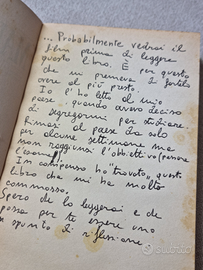 ... Probabilmente vedrai il
film prima di leggere
questo libro. È per questo
che mi premeva di fartelo
avere al più presto.
Io l'ho letto al mio
paese quando avevo deciso
di segregarmi per studiare.
Rimasi al paese da solo
per alcune settimane ma
non raggiunsi l'obbiettivo (
l'esame).
In compenso ho trovato questo
libro che mi ha molto
commosso.
Spero che lo leggerai e che
possa per te essere uno
spunto di riflessione.
subito